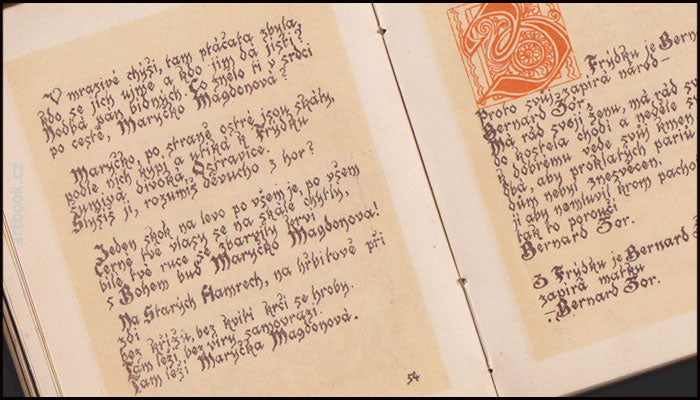 V mrazivé chýši, tam ptáčata zbyla,
kdo se jich ujme a kdo jim dá jísti?
Nedbá pán bídných. Co znělo ti v srdci
po cestě, Maryčko Magdonova?
Maryčko, po straně ostré jsou skály,
podle nich kypí a utíká k Frýdku
šumivá divoká Ostravice.
Slyšíš ji, rozumíš děvucho z hor?
Jeden skok na levo po všem je, po všem
Černé tvé vlasy se na skále chytly,
bílé tvé ruce se zbarvily krví
s Bohem buď Maryčko Magdonova!
Na Starých Hamrech, na hřbitově při
zdi
bez křížů, bez kvítí krčí se hroby.
Tam leží bez víry samovrazi.
Tam leží Maryčka Magdonova.
54
Z Frýdku je Berna
proto svůj zapírá národ—
Bernard Žór.
Má rád svoji ženu, má rád sv
do kostela chodí a neděle s
k dobrému vede svůj kmen
aby proklatých
nebyl znesvěcen.
aby nemluvil krom pacho
tak to poroučí
Bernard Žor.
Z Frýdku je Bernard Ž
zapírá matku
Bernard Žor.
artbook.cz